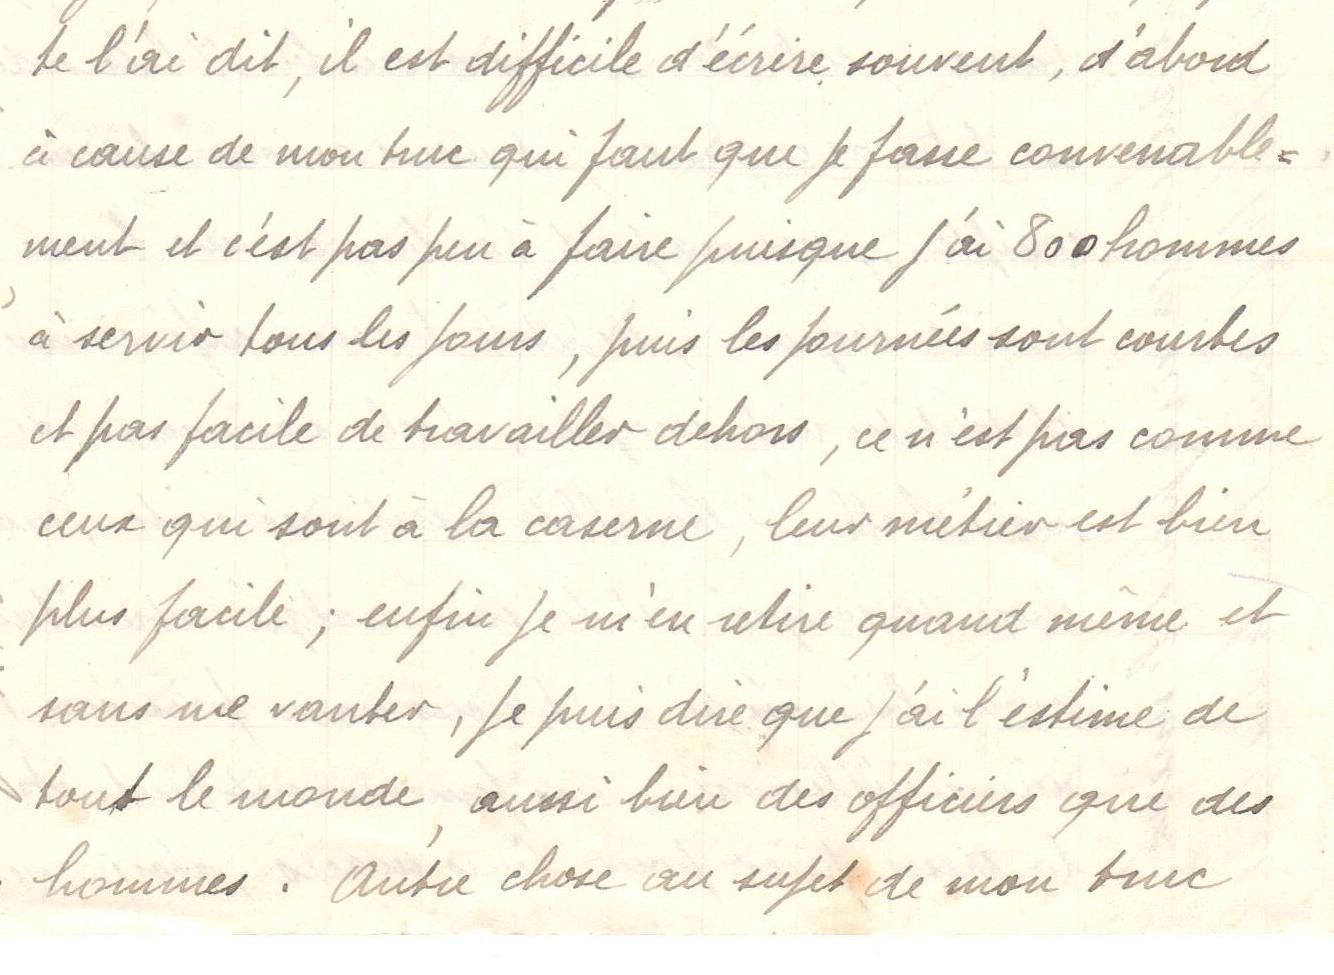 te l'ai dit, il est difficile d'écrire souvent, d'abord
à cause de mon truc qui faut que je fasse convenable=
ment et c'est pas peu à faire puisque j'ai 800 hommes
à servir tous les jours, puis les journées sont courtes
et pas facile de travailler dehors, ce n'est pas comme
ceux qui sont à la caserne, leur métier est bien
plus facile ; enfin je m'en retire quand même et
sans me vanter, je puis dire que j'ai l'estime de
tout le monde, aussi bien des officiers que des
hommes. Autre chose au sujet de mon truc